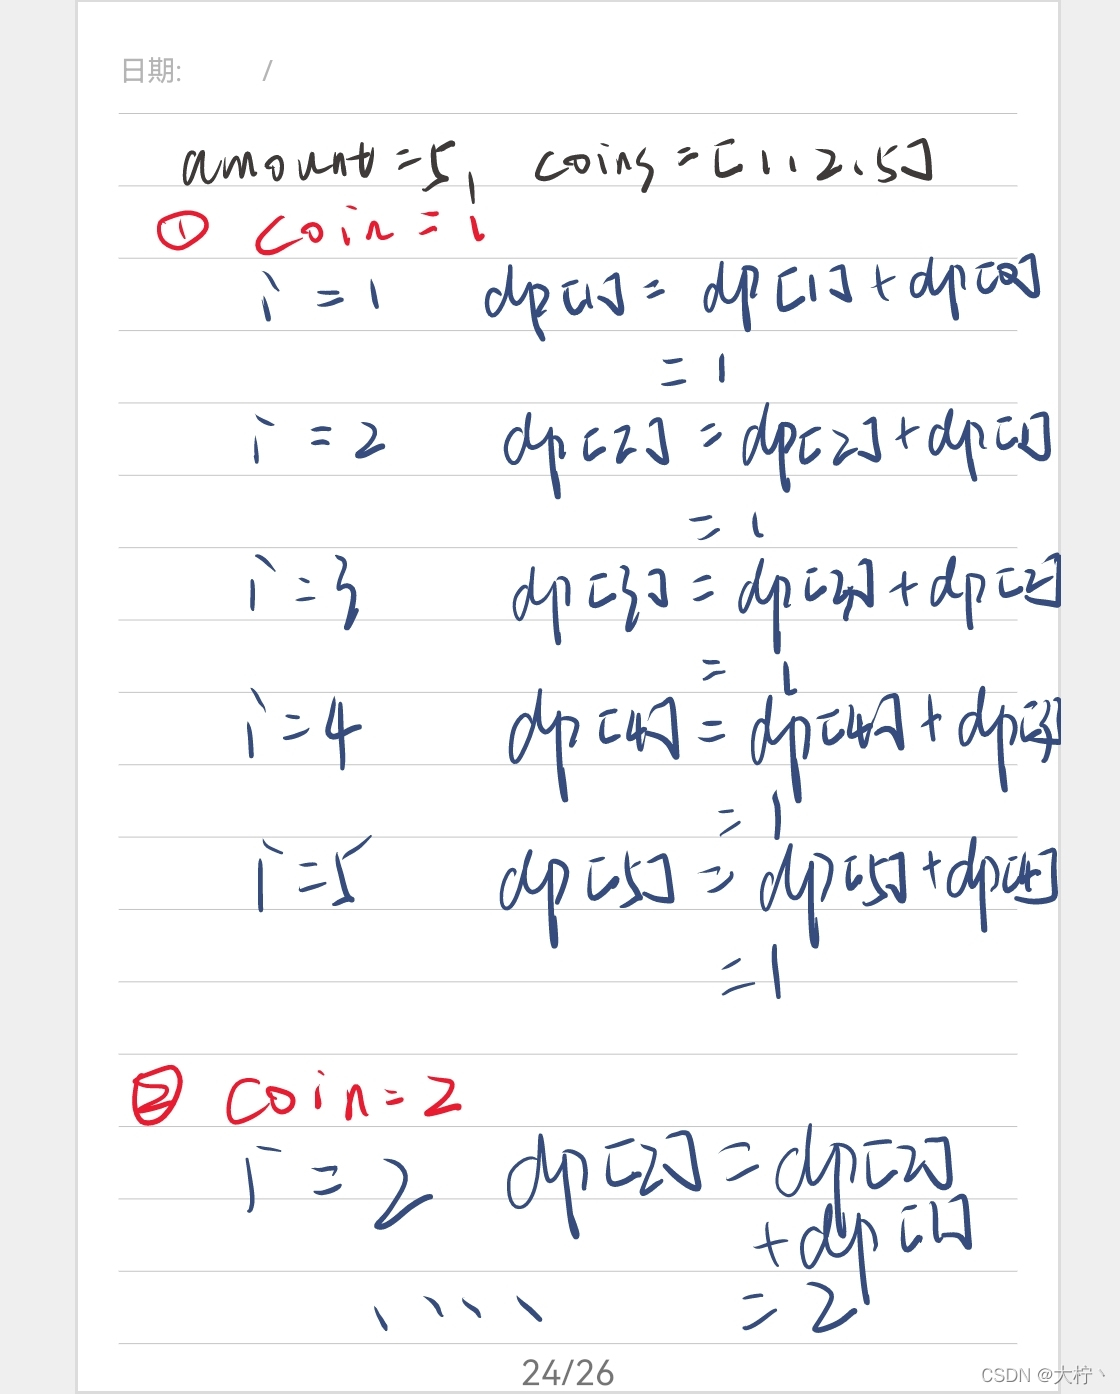 日期: /
amount=5, coins=[1,2,5]
① coin=1
i=1 dp[1]=dp[1]+dp[0]
=1
i=2 dp[2]=dp[2]+dp[1]
=1
i=3 dp[3]=dp[3]+dp[2]
=1
i=4 dp[4]=dp[4]+dp[3]
=1
i=5 dp[5]=dp[5]+dp[4]
=1
② coin=2
i=2 dp[2]=dp[2]
+dp[1]
....
=2
24/26
CSDN @大柠丶